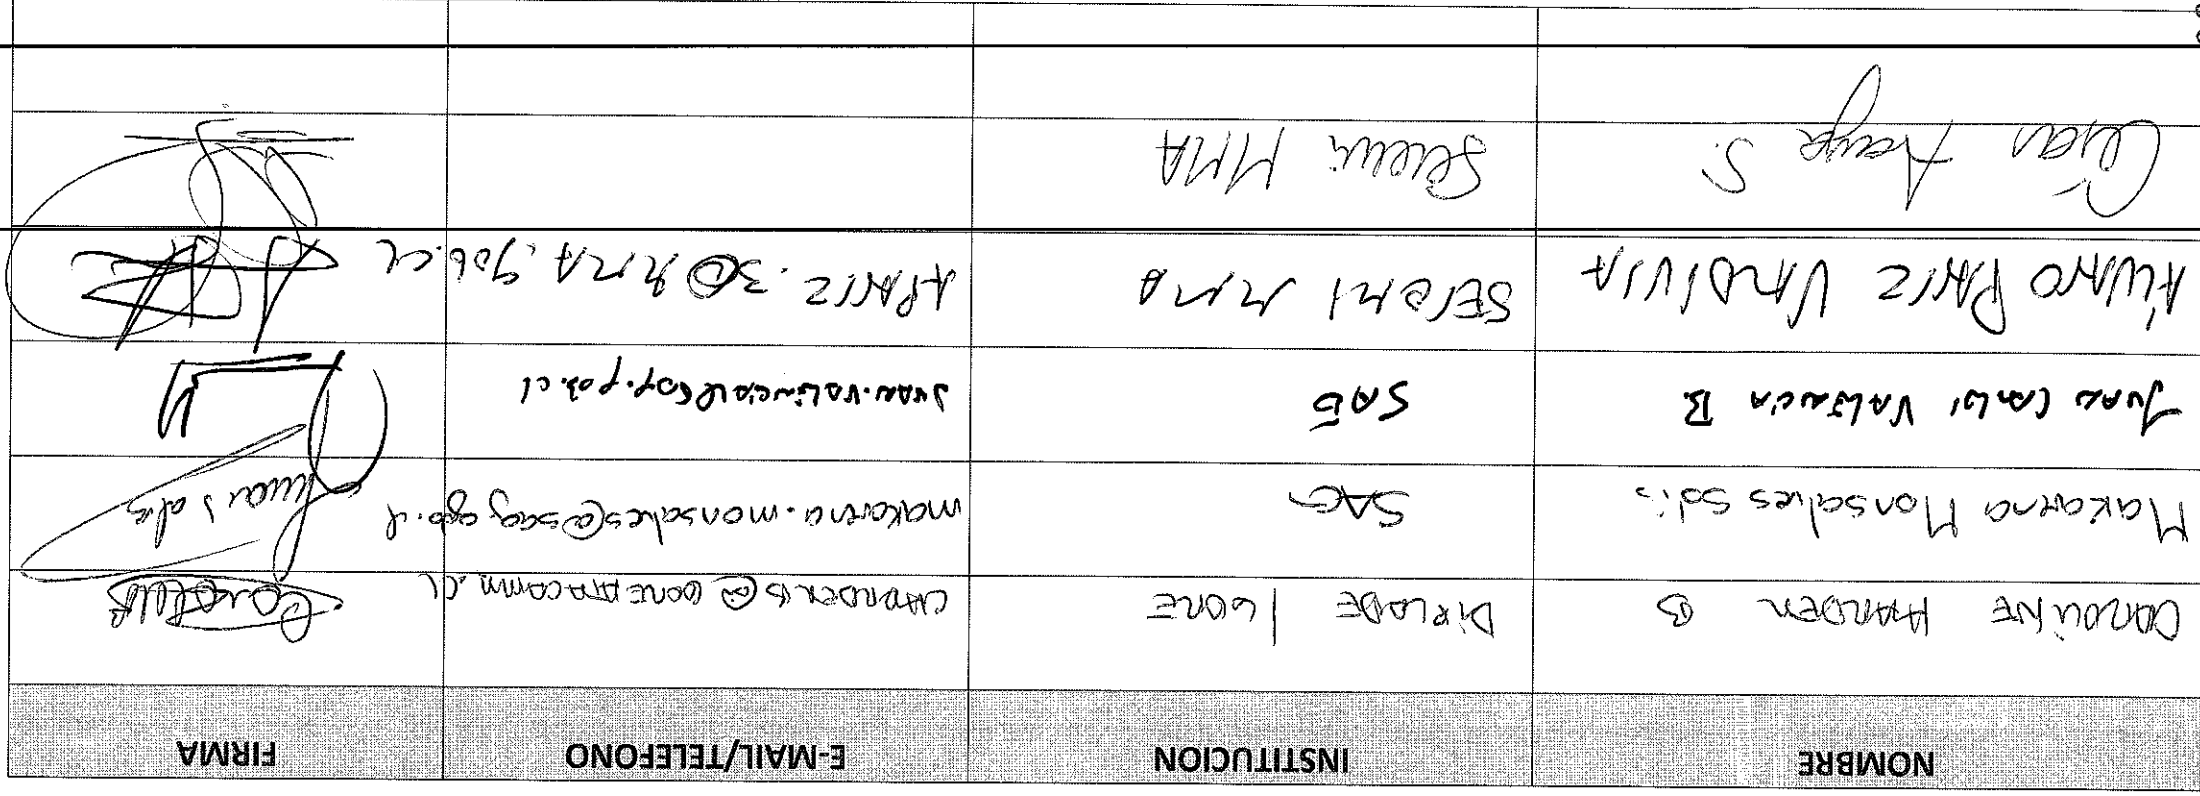 NOMBRE INSTITUCION E-MAIL/TELEFONO FIRMA
CAROLINE HARDER B DIPLADE / GORE CHARDERB@GOREATACAMA.CL
Makarena Monsalves Solis SAG makarena.monsalves@sag.gob.cl
Juan Carlos Valencia B SAG juan.valencia@sag.gob.cl
SEREMI MMA APAREZ.3@MMA.gob.cl
César Araya S. Seremi MMA